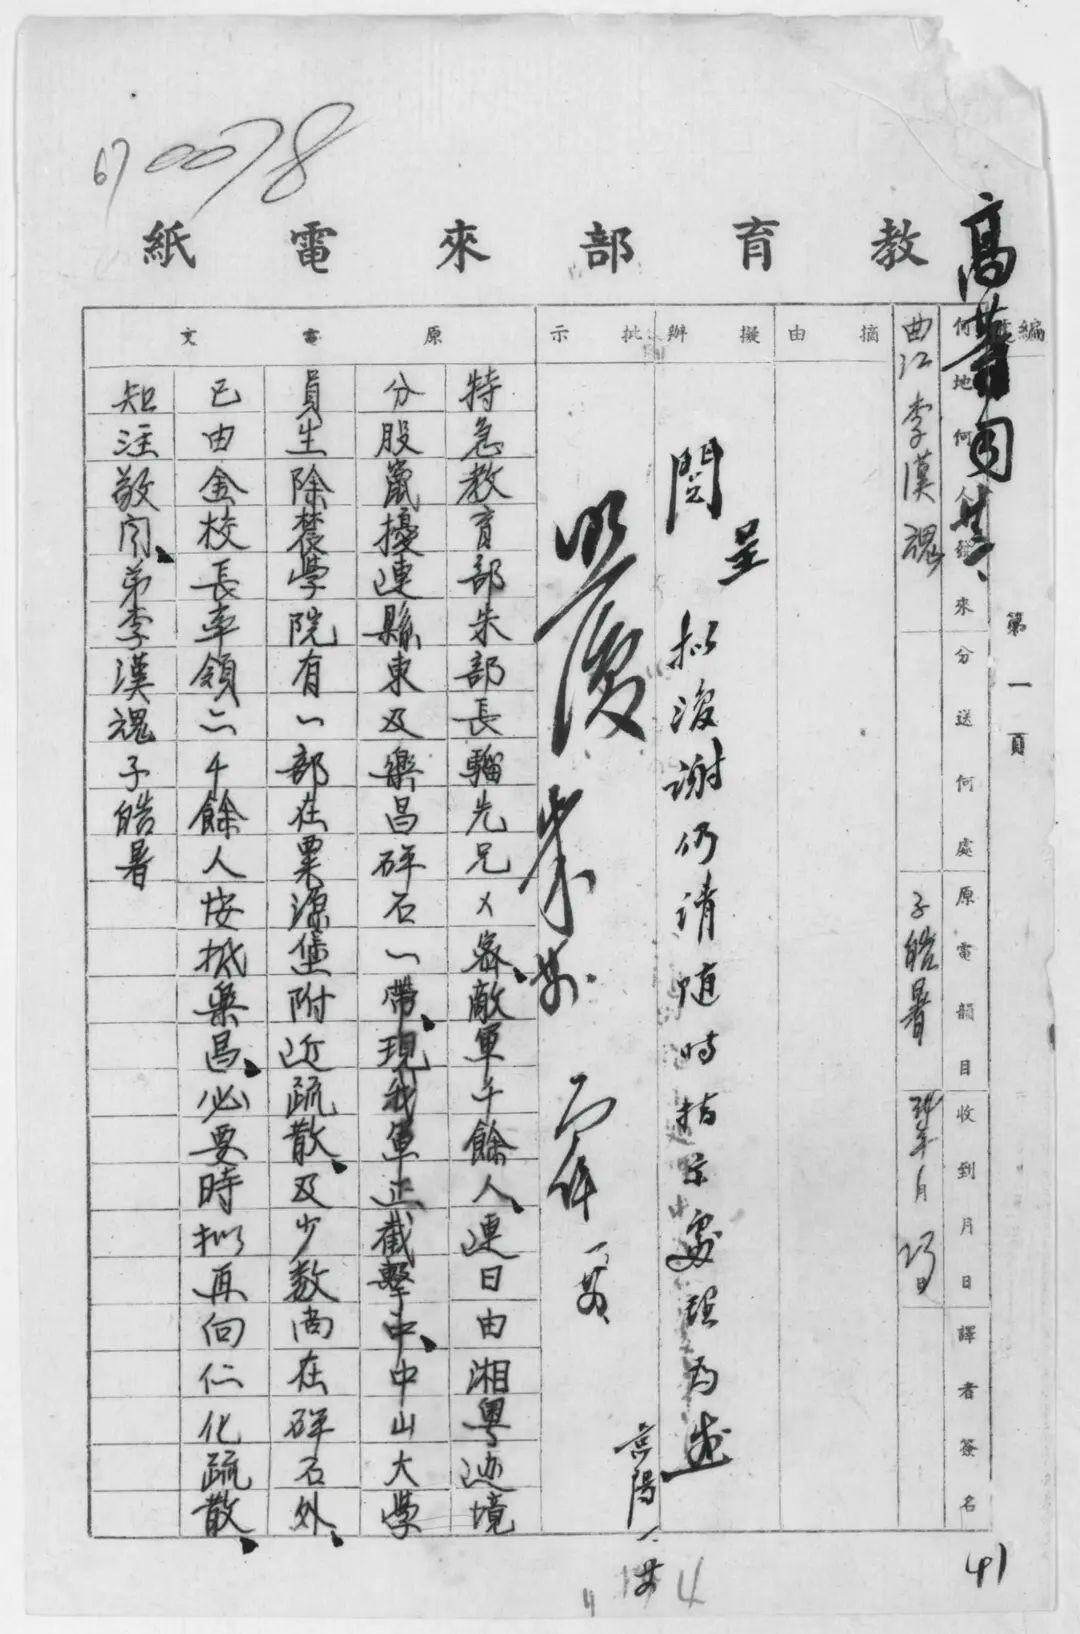 67 0078
教育部來電紙
高等司
第一頁
編
何地何人發來
曲江李漢魂
分送何處
原電韻目
子皓暑
收到月日
譯者簽名
摘由
擬辦
批示
原電文
閱呈
拟復謝仍請隨時指示處理為盼
照復
特急教育部朱部長騮先兄乂密敵軍千餘人連日由湘粵边境
分股竄擾連縣東及樂昌砰石一帶現我軍正截擊中中山大學
員生除農學院有一部在栗源堡附近疏散及少数尚在砰石外
已由金校長率領二千餘人安抵樂昌必要時拟再向仁化疏散
知注敬聞弟李漢魂子皓暑
41
4